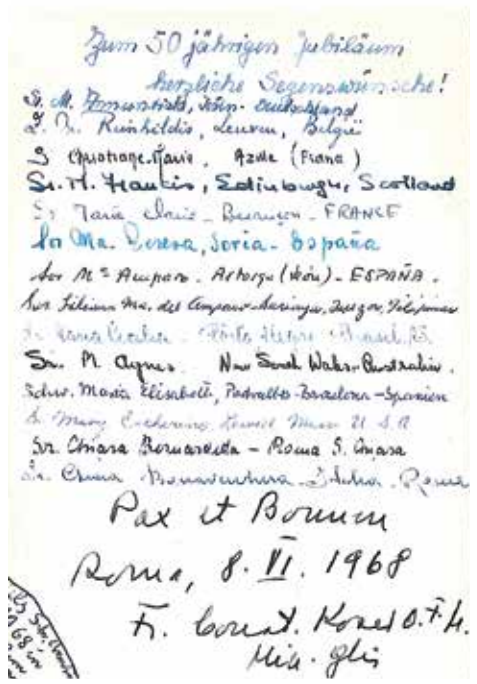 Zum 50 jährigen Jubiläum
herzliche Segenswünsche!
Sr. M. Köln-Deutschland
Reinhildis, Leuven, België
S Christiane-Marie, Azille (France)
Sr. M. Francis, Edinburgh, Scotland
Sr Marie Claire - Besançon - FRANCE
Sor Ma. Teresa, Soria - España
Sor Mª Amparo. Astorga (León) - ESPAÑA.
Sor Ma. del Filipinas
Sr. Maria Cecilia - Pôrto Alegre - Brasil
Sr. M. Agnes. New South Wales - Australia.
Schw. Maria Elisabeth, Pedralbes-Barcelona-Spanien
Sr. Mary Lowell Mass U.S.A
Sr. Chiara Bernardetta - Roma S. Chiara
Sr. Chiara Bonaventura - Italia - Roma
Pax et Bonum
Roma, 8. VI. 1968
Fr. Const. Koser O.F.M.
Min. glis
68 in